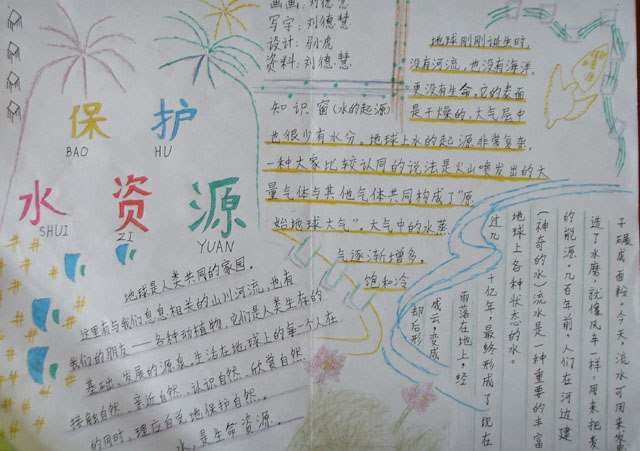 保护
BAO HU
水资源
SHUI ZI YUAN
画画:刘德慧
写字:刘德慧
设计:
资料:刘德慧
知识窗(水的起源)
地球刚刚诞生时,
没有河流,也没有海洋,
更没有生命,它的表面
是干燥的,大气层中
也很少有水分。地球上水的起源非常复杂,
一种大家比较认同的说法是火山喷发出的大
量气体与其他气体共同构成了“原
始地球大气”。大气中的水蒸
气逐渐增多。
饱和冷
却后形
成云,变成
雨落在地上,经
过几
十亿年,最终形成了现在
地球上各种状态的水。
(神奇的水)流水是一种重要的丰富
的能源,几百年前,人们在河边建
造了水磨,就像风车一样,用来把麦
子碾成面粉。今天,流水可用来发
地球是人类共同的家园。
这里有与我们息息相关的山川河流,也有
我们的朋友——各种动植物,它们是人类生存的
基础、发展的源泉。生活在地球上的每一个人在
接触自然、亲近自然、认识自然、欣赏自然
的同时,理应自觉地保护自然。
水,是生命资源。